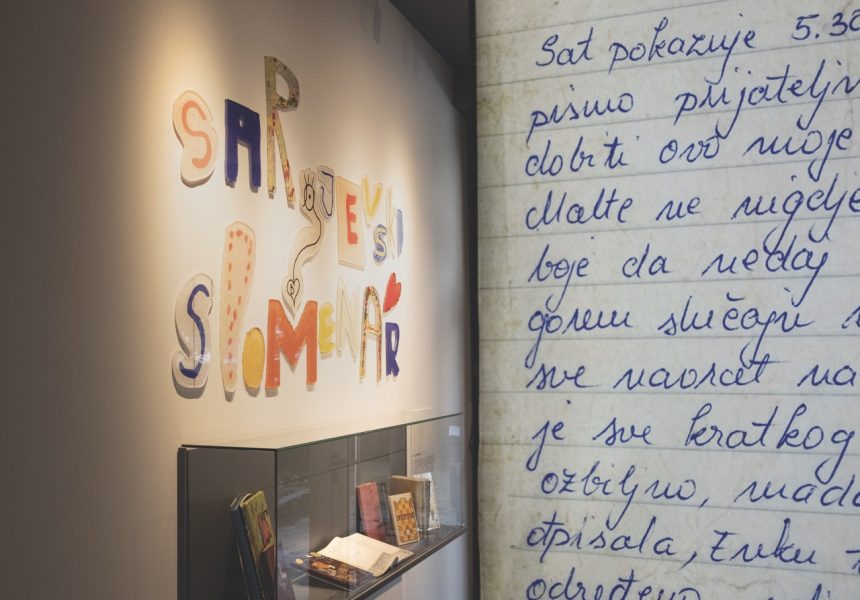 SARAJEVSKI
SPOMENAR
Sat pokazuje 5.30
pismo prijatelju
dobiti ovo moje
Malte ne nigdje
boje da nedaj
gorem slučaju
sve navrat na
je sve kratkog
ozbiljno, mada
otpisala,
određeno